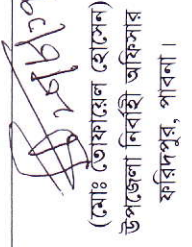 (মোঃ তোফায়েল হোসেন)
উপজেলা নির্বাহী অফিসার
ফরিদপুর, পাবনা।